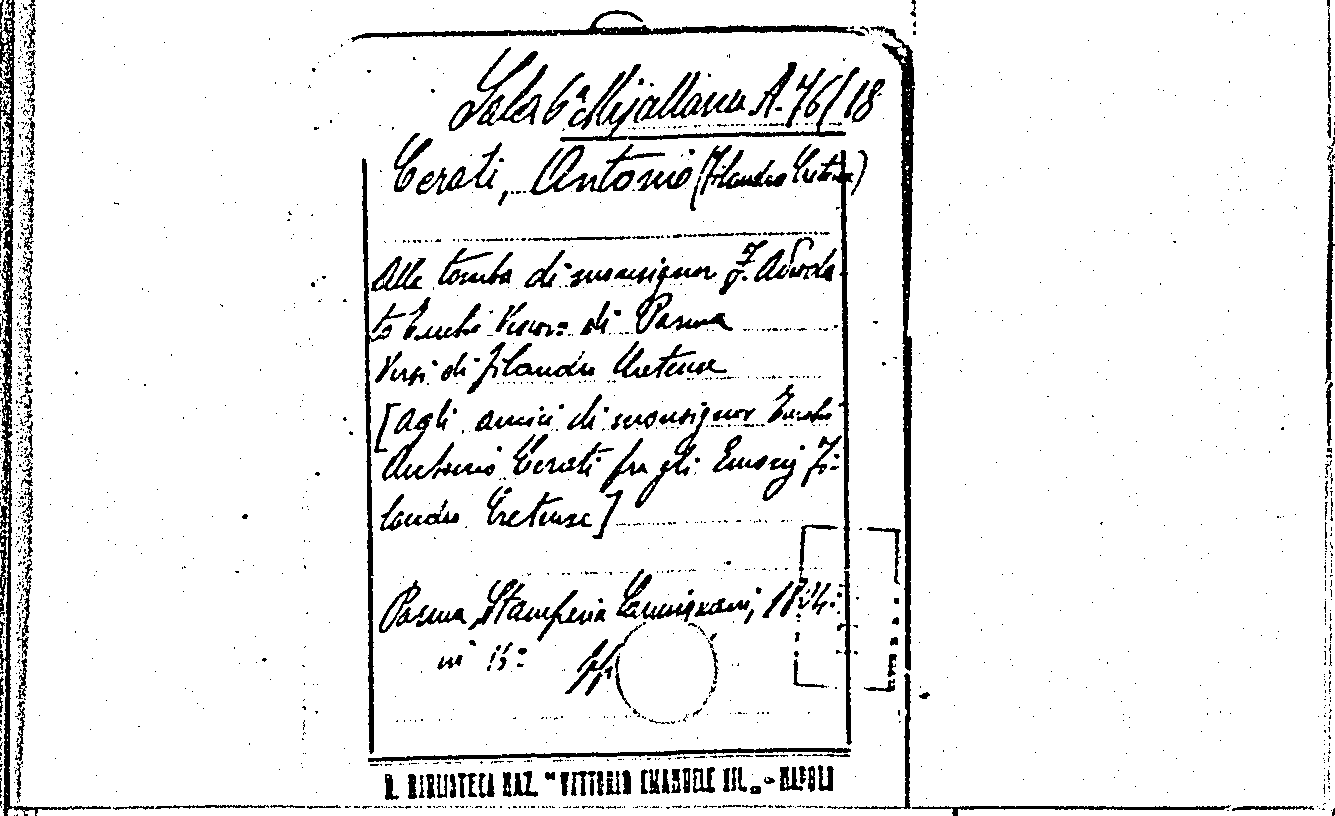 Sala 6ª Miscellanea A. 76/18
Cerati, Antonio (Filandro Cretense)
Alla tomba di monsignor F. Adeoda-
to Turchi Vescov: di Parma
Versi di Filandro Cretense
[Agli amici di monsignor Turchi
Antonio Cerati fra gli Emonj Fi-
landro Cretense]
Parma, Stamperia Carmignani, 1824:
in
R. BIBLIOTECA NAZ. "VITTORIO EMANUELE III." - NAPOLI